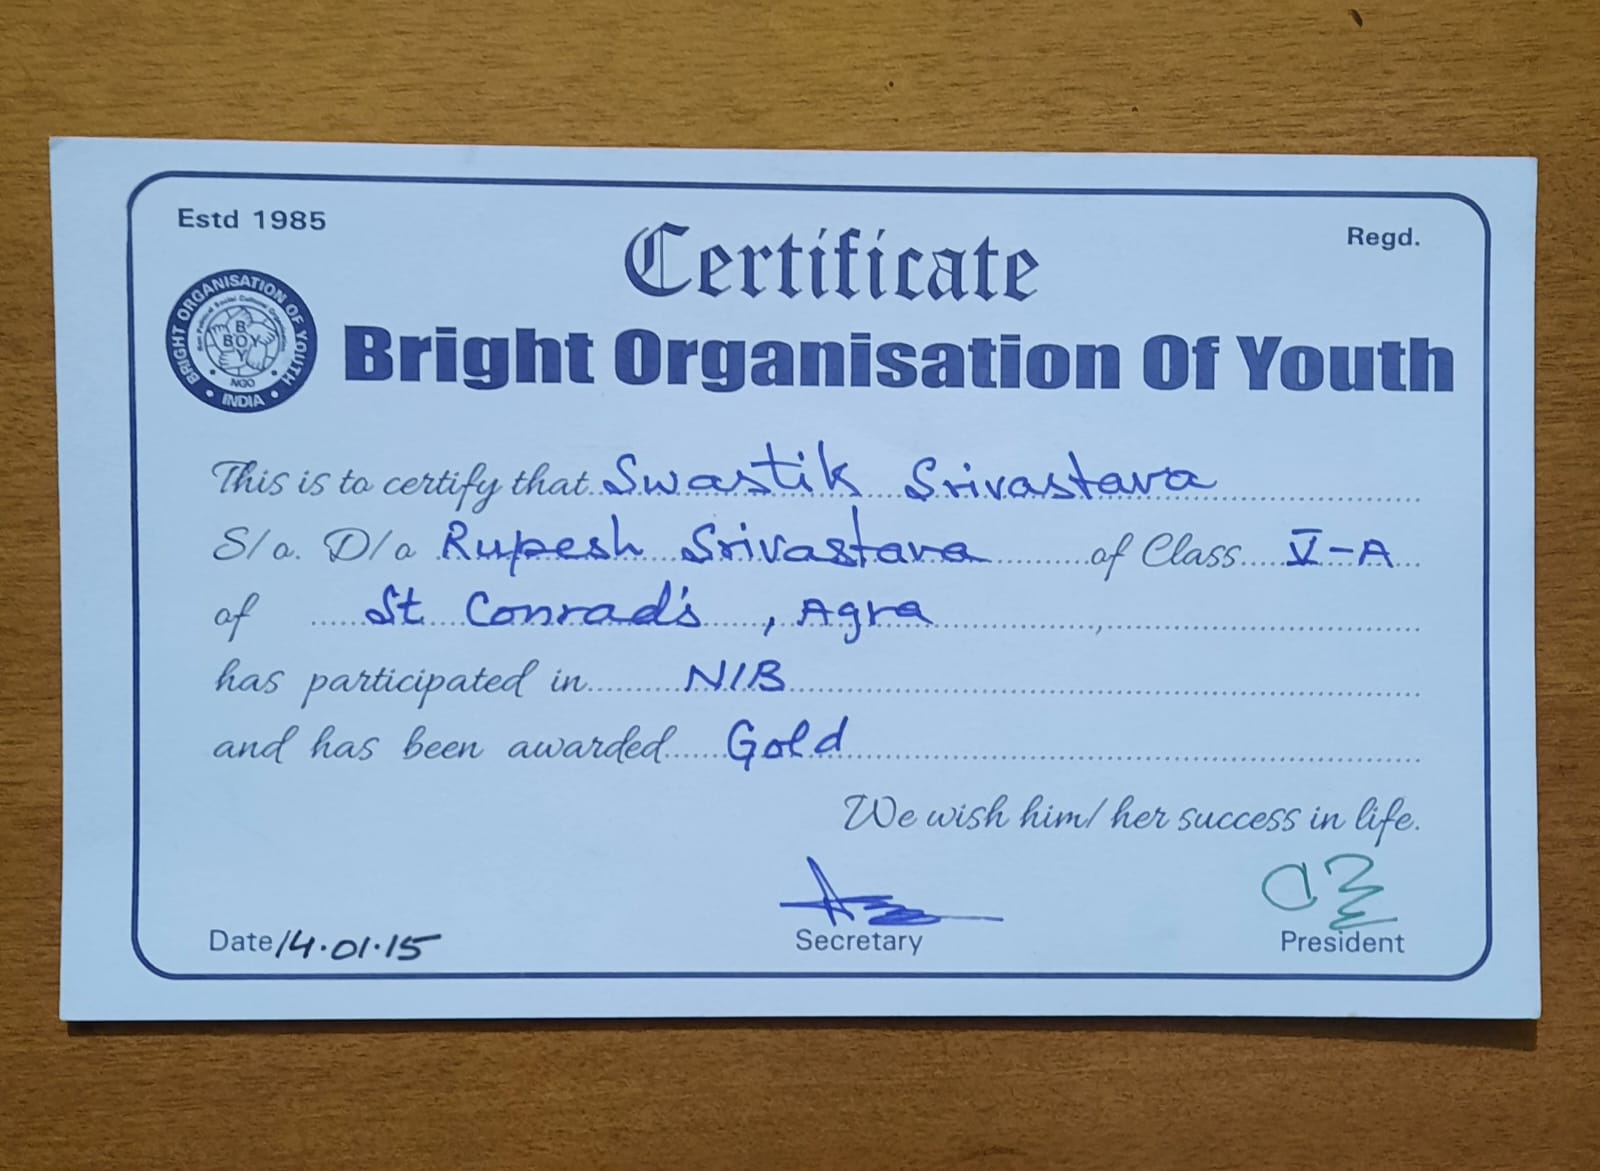 Estd 1985
Regd.
Certificate
BRIGHT ORGANISATION OF YOUTH
B
BOY
Y
NGO
• INDIA •
Bright Organisation Of Youth
This is to certify that Swastik Srivastava
S/o. D/o Rupesh Srivastava of Class V-A
of St. Conrad's, Agra
has participated in NIB
and has been awarded Gold
We wish him/ her success in life.
Date 14.01.15
Secretary
President